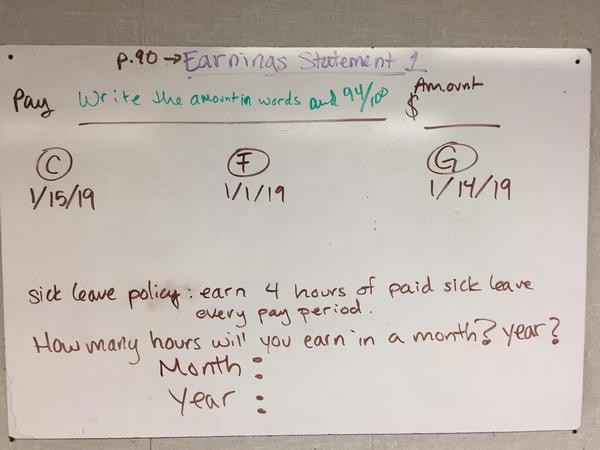 p.90 → Earnings Statement 1
Pay Write the amount in words and 94/100 Amount
$
C F G
1/15/19 1/1/19 1/14/19
sick leave policy: earn 4 hours of paid sick leave
every pay period.
How many hours will you earn in a month? year?
Month :
Year :